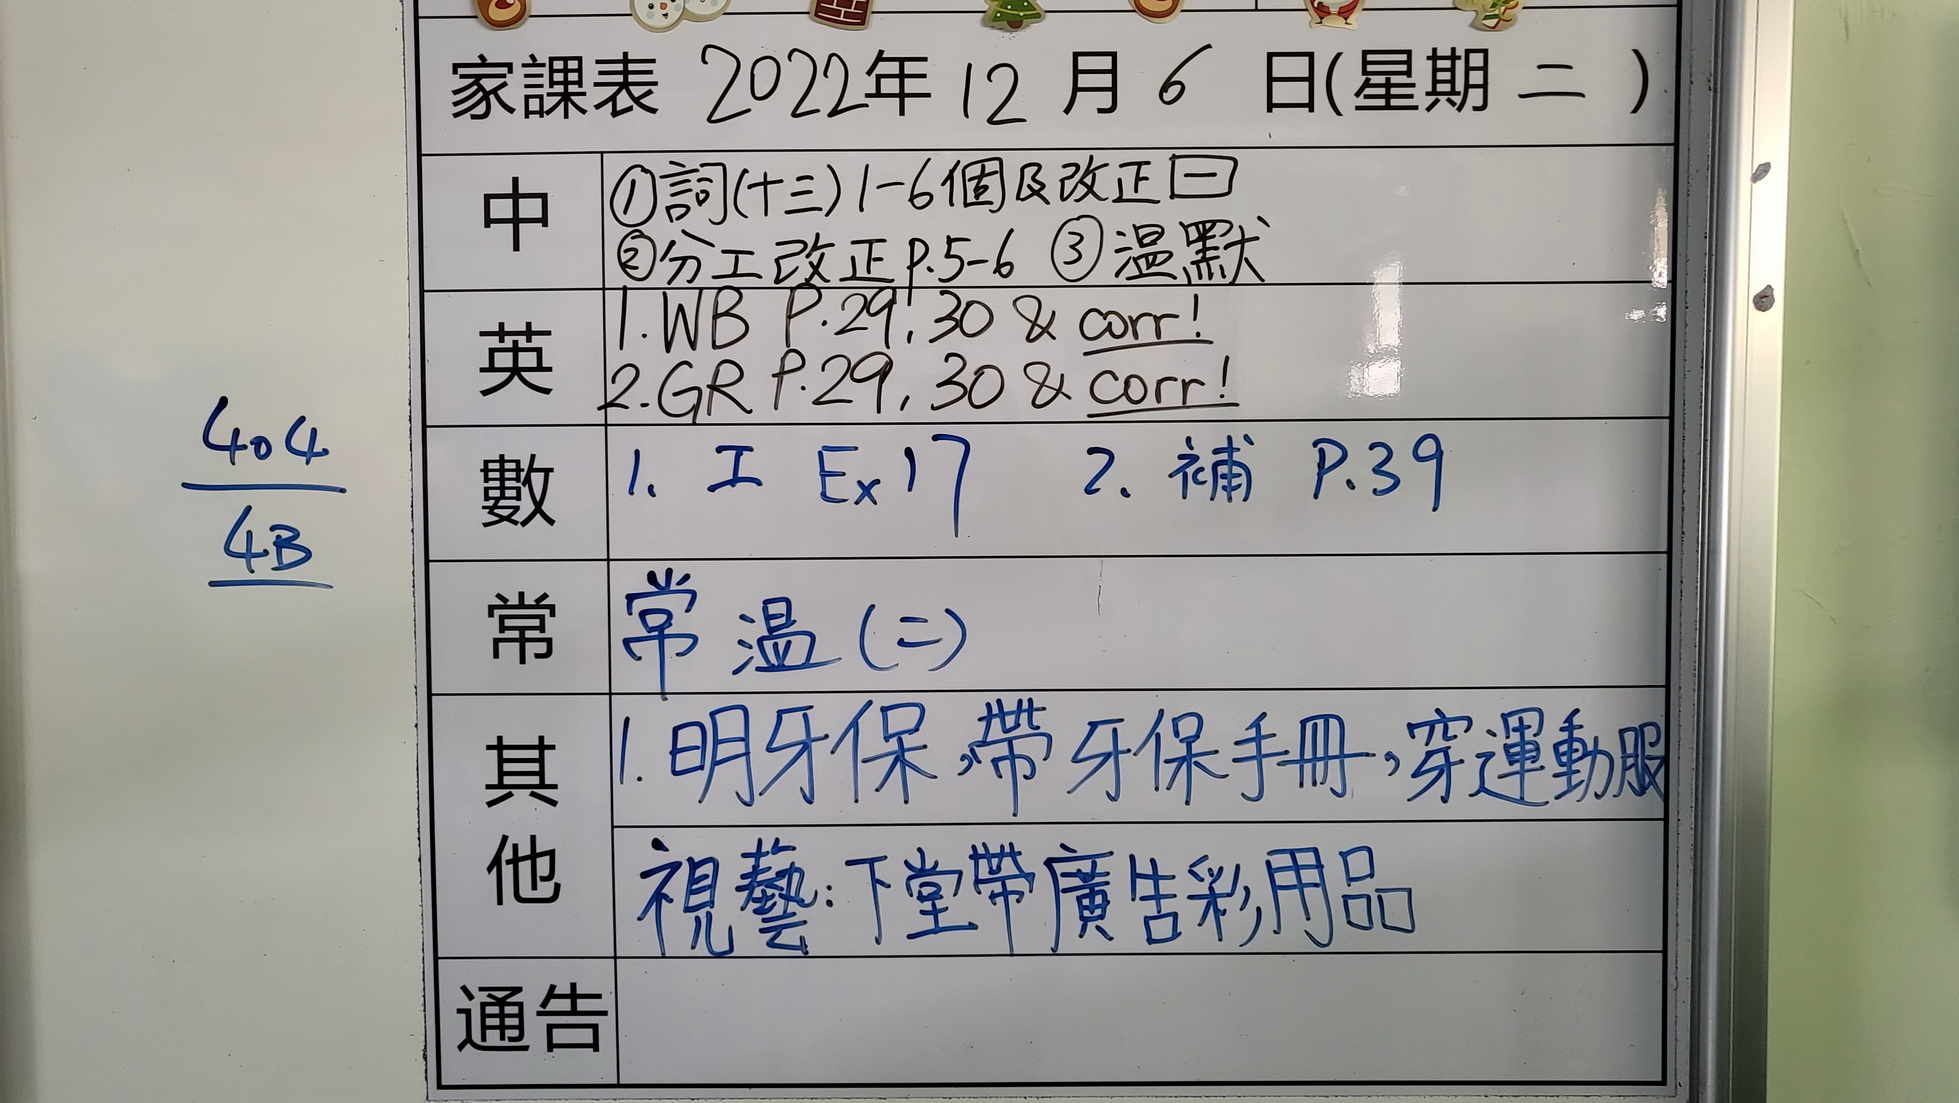 家課表 2022年 12 月 6 日(星期 二 )
中
①詞(十三)1-6個及改正
②分工改正P.5-6 ③温默
英
1.WB P.29,30 & corr!
2.GR P.29,30 & corr!
404
4B
數
1. 工 Ex17 2. 補 P.39
常
常温(二)
其他
1.明牙保,帶牙保手冊,穿運動服
視藝:下堂帶廣告彩用品
通告